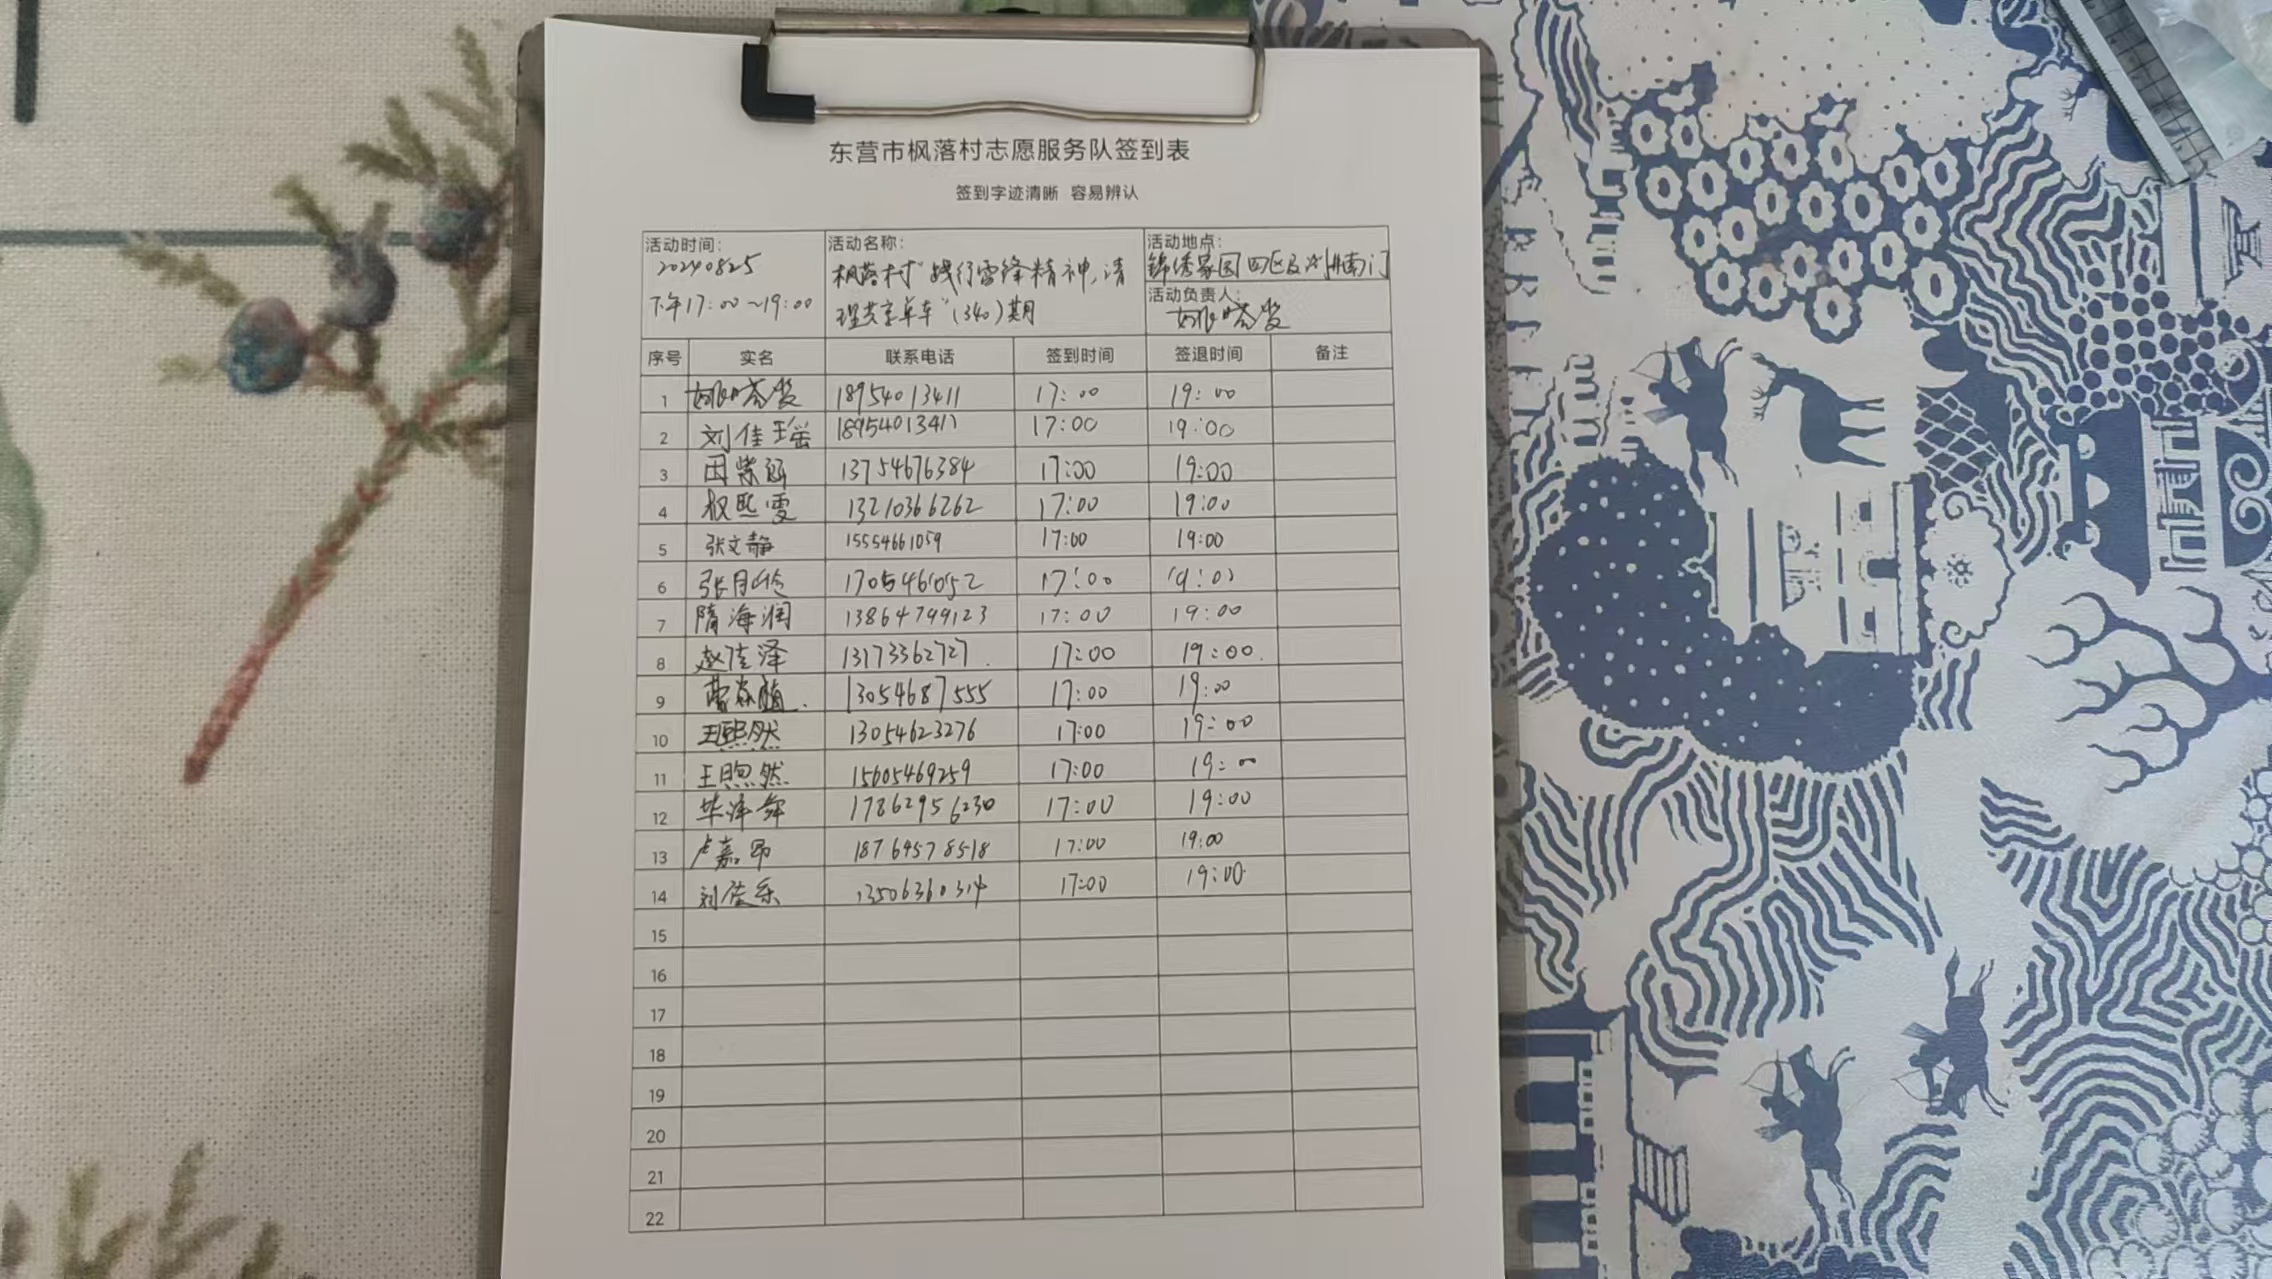 东营市枫落村志愿服务队签到表
签到字迹清晰 容易辨认
活动时间: 活动名称: 活动地点:
20240825 枫落村"践行雷锋精神,请 锦绣家园四区及 南门
下午17:00~19:00 理共享单车"(340)期 活动负责人:
序号 实名 联系电话 签到时间 签退时间 备注
1 18954013411 17:00 19:00
2 刘佳瑶 18954013411 17:00 19:00
3 田紫涵 13754676384 17:00 19:00
4 权熙雯 13210366262 17:00 19:00
5 张文静 15554661059 17:00 19:00
6 17:00 19:00
7 隋海润 13864799123 17:00 19:00
8 赵佳泽 13173362727. 17:00 19:00.
9 13054687555 17:00 19:00
10 王熙然 13054623276 17:00 19:00
11 王煦然 15605469259 17:00 19:00
12 毕泽舜 17862956230 17:00 19:00
13 卢嘉昂 18764578518 17:00 19:00
14 刘俊乐 13506360314 17:00 19:00
15
16
17
18
19
20
21
22